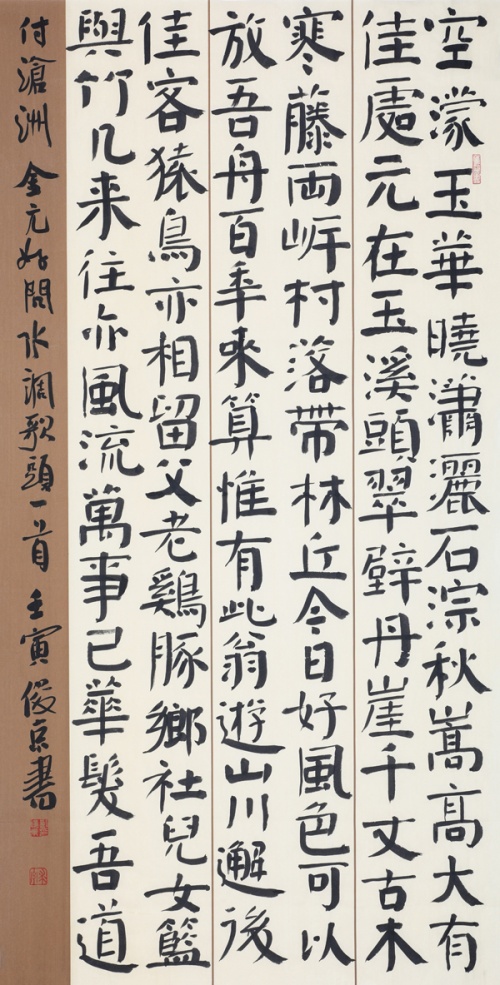 空濛玉華曉瀟灑石淙秋嵩高大有
佳處元在玉溪頭翠壁丹崖千丈古木
寒藤両岸村落帶林丘今日好風色可以
放吾舟百年来算惟有此翁遊山川邂後
佳客猿鳥亦相留父老鷄豚鄉社兒女籃
與竹几来往亦風流萬事已華髮吾道
付滄洲 金元好問水調歌頭一首 壬寅 俊京書